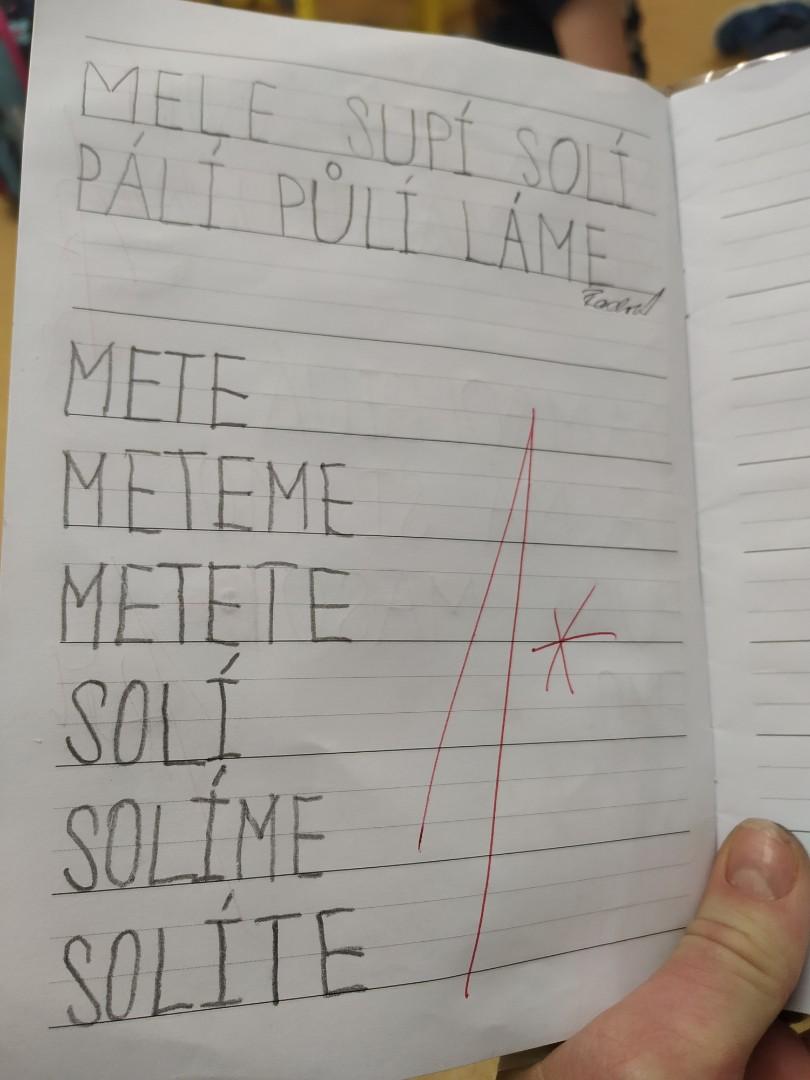 MELE SUPÍ SOLÍ
PÁLÍ PŮLÍ LÁME
METE
METEME
METETE
SOLÍ
SOLÍME
SOLÍTE